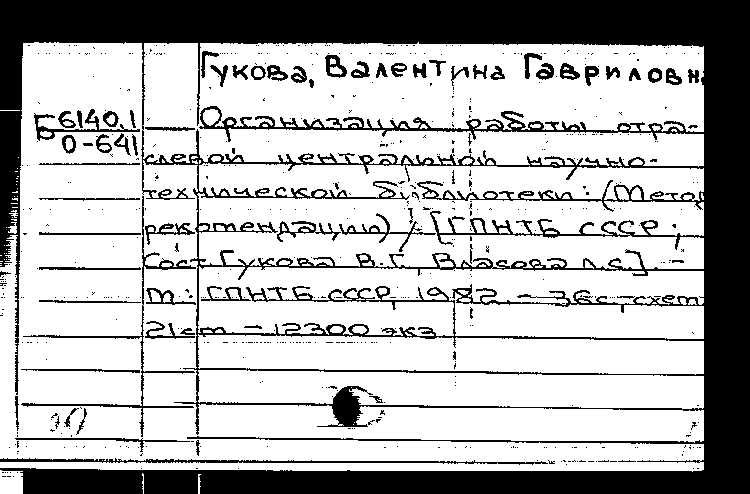 Гукова, Валентина Гавриловн
Б 6140.1
0-641
Организация работы отра-
слевой центральной научно-
технической библиотеки: (Метод
рекомендации) / [ГПНТБ СССР ;
Сост. Гукова В.Г., Власова Л.С.]. -
М.: ГПНТБ СССР, 1982. - 36 с., схем
21 см. - 12300 экз